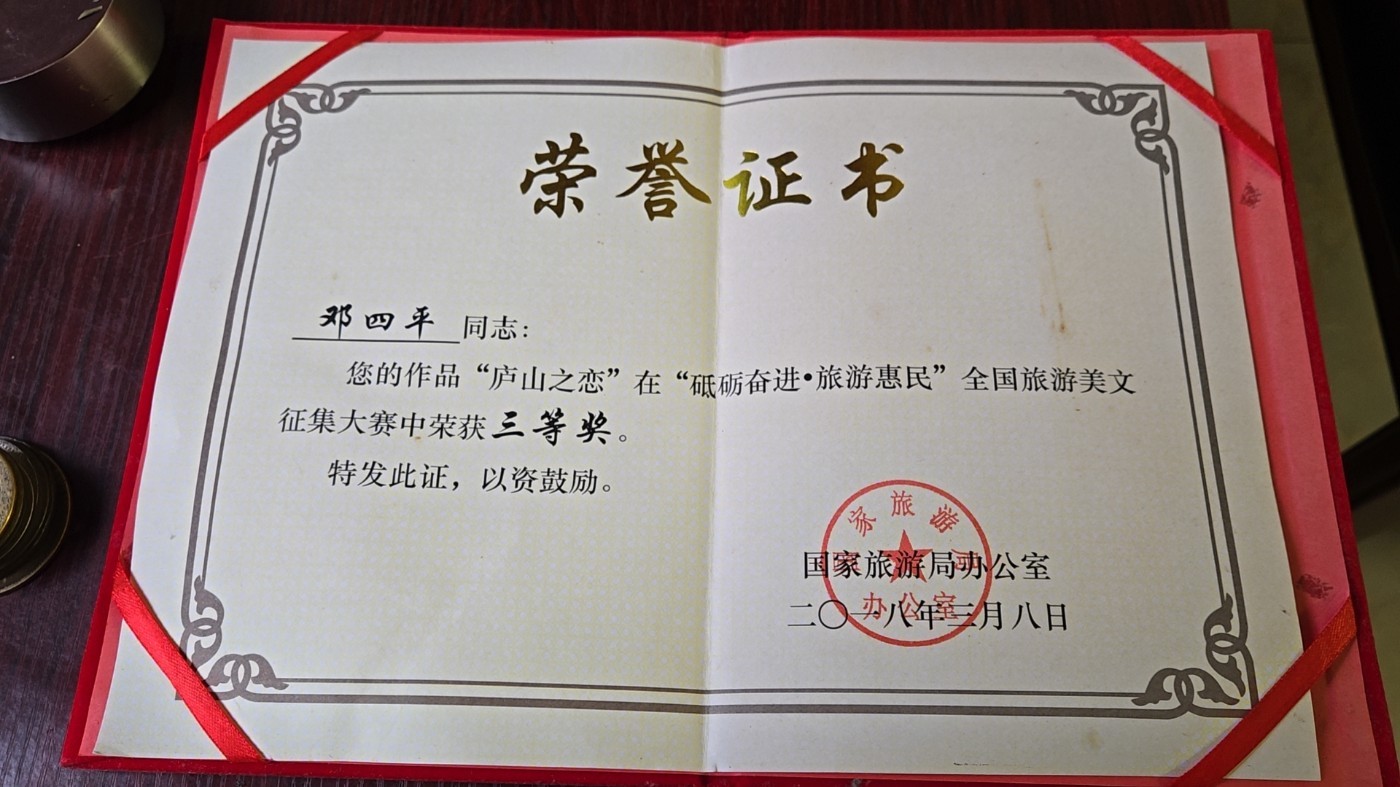 荣誉证书
邓四平 同志：
您的作品“庐山之恋”在“砥砺奋进•旅游惠民”全国旅游美文
征集大赛中荣获三等奖。
特发此证，以资鼓励。
国家旅游局
办公室
国家旅游局办公室
二〇一八年三月八日